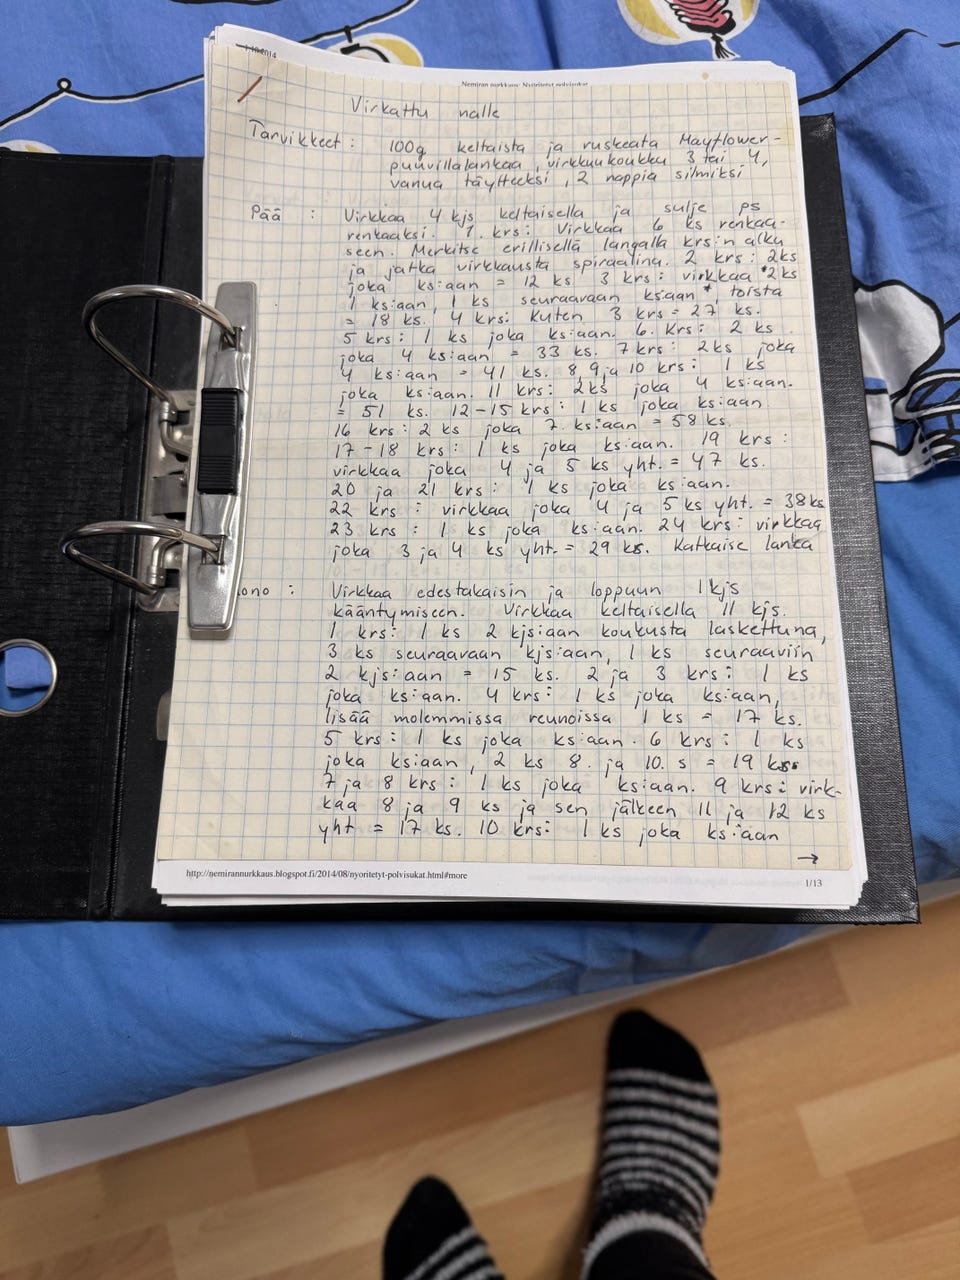 1.10.2014
Nemiran nurkkaus: Nyöritetyt polvisukat
Virkattu nalle
Tarvikkeet : 100g keltaista ja ruskeata Mayflower-
puuvillalankaa, virkkuukoukku 3 tai 4,
vanua täytteeksi, 2 nappia silmiksi
Pää : Virkkaa 4 kjs keltaisella ja sulje ps
renkaaksi. 1. krs: Virkkaa 6 ks renkaa-
seen. Merkitse erillisellä langalla krs:n alku
ja jatka virkkausta spiraalina. 2 krs: 2ks
joka ks:aan = 12 ks. 3 krs: virkkaa *2ks
1 ks:aan, 1 ks seuraavaan ks:aan*, toista
= 18 ks. 4 krs: kuten 3 krs = 27 ks.
5 krs: 1 ks joka ks:aan. 6. krs: 2 ks
joka 4 ks:aan = 33 ks. 7 krs: 2ks joka
4 ks:aan = 41 ks. 8, 9 ja 10 krs: 1 ks
joka ks:aan. 11 krs: 2ks joka 4 ks:aan.
= 51 ks. 12-15 krs: 1 ks joka ks:aan
16 krs: 2 ks joka 7. ks:aan = 58 ks.
17-18 krs: 1 ks joka ks:aan. 19 krs:
virkkaa joka 4 ja 5 ks yht. = 47 ks.
20 ja 21 krs: 1 ks joka ks:aan.
22 krs: virkkaa joka 4 ja 5 ks yht. = 38 ks
23 krs: 1 ks joka ks:aan. 24 krs: virkkaa
joka 3 ja 4 ks yht. = 29 ks. Katkaise lanka
ono : Virkkaa edestakaisin ja loppuun 1 kjs
kääntymiseen. Virkkaa keltaisella 11 kjs.
1 krs: 1 ks 2 kjs:aan koukusta laskettuna,
3 ks seuraavaan kjs:aan, 1 ks seuraaviin
2 kjs:aan = 15 ks. 2 ja 3 krs: 1 ks
joka ks:aan. 4 krs: 1 ks joka ks:aan,
lisää molemmissa reunoissa 1 ks = 17 ks.
5 krs: 1 ks joka ks:aan. 6 krs: 1 ks
joka ks:aan, 2 ks 8. ja 10. s = 19 ks.
7 ja 8 krs: 1 ks joka ks:aan. 9 krs: virk-
kaa 8 ja 9 ks ja sen jälkeen 11 ja 12 ks
yht = 17 ks. 10 krs: 1 ks joka ks:aan
→
http://nemirannurkkaus.blogspot.fi/2014/08/nyoritetyt-polvisukat.html#more
1/13